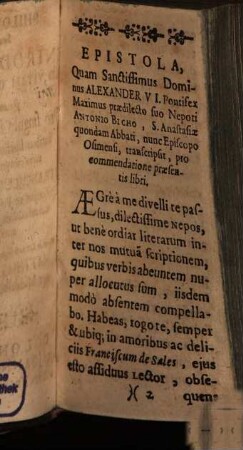 EPISTOLA,
Quam Sanctissimus Domi-
nus ALEXANDER VI I. Pontifex
Maximus prædilecto suo Nepoti
ANTONIO BICHO, S. Anastasiæ
quondam Abbati, nunc Episcopo
Osimensi, transcripsit, pro
commendatione præsen-
tis libri.
ÆGrè à me divelli te pas-
sus, dilectissime Nepos,
ut benè ordiat literarum in-
ter nos mutuã scriptionem,
quibus verbis abeuntem nu-
per allocutus sum, iisdem
modò absentem compella-
bo. Habeas, rogo te, semper
&ubiq; in amoribus ac deli-
ciis Franciscum de Sales, ejus
esto assiduus Lector, obse-
)( 2 quen-